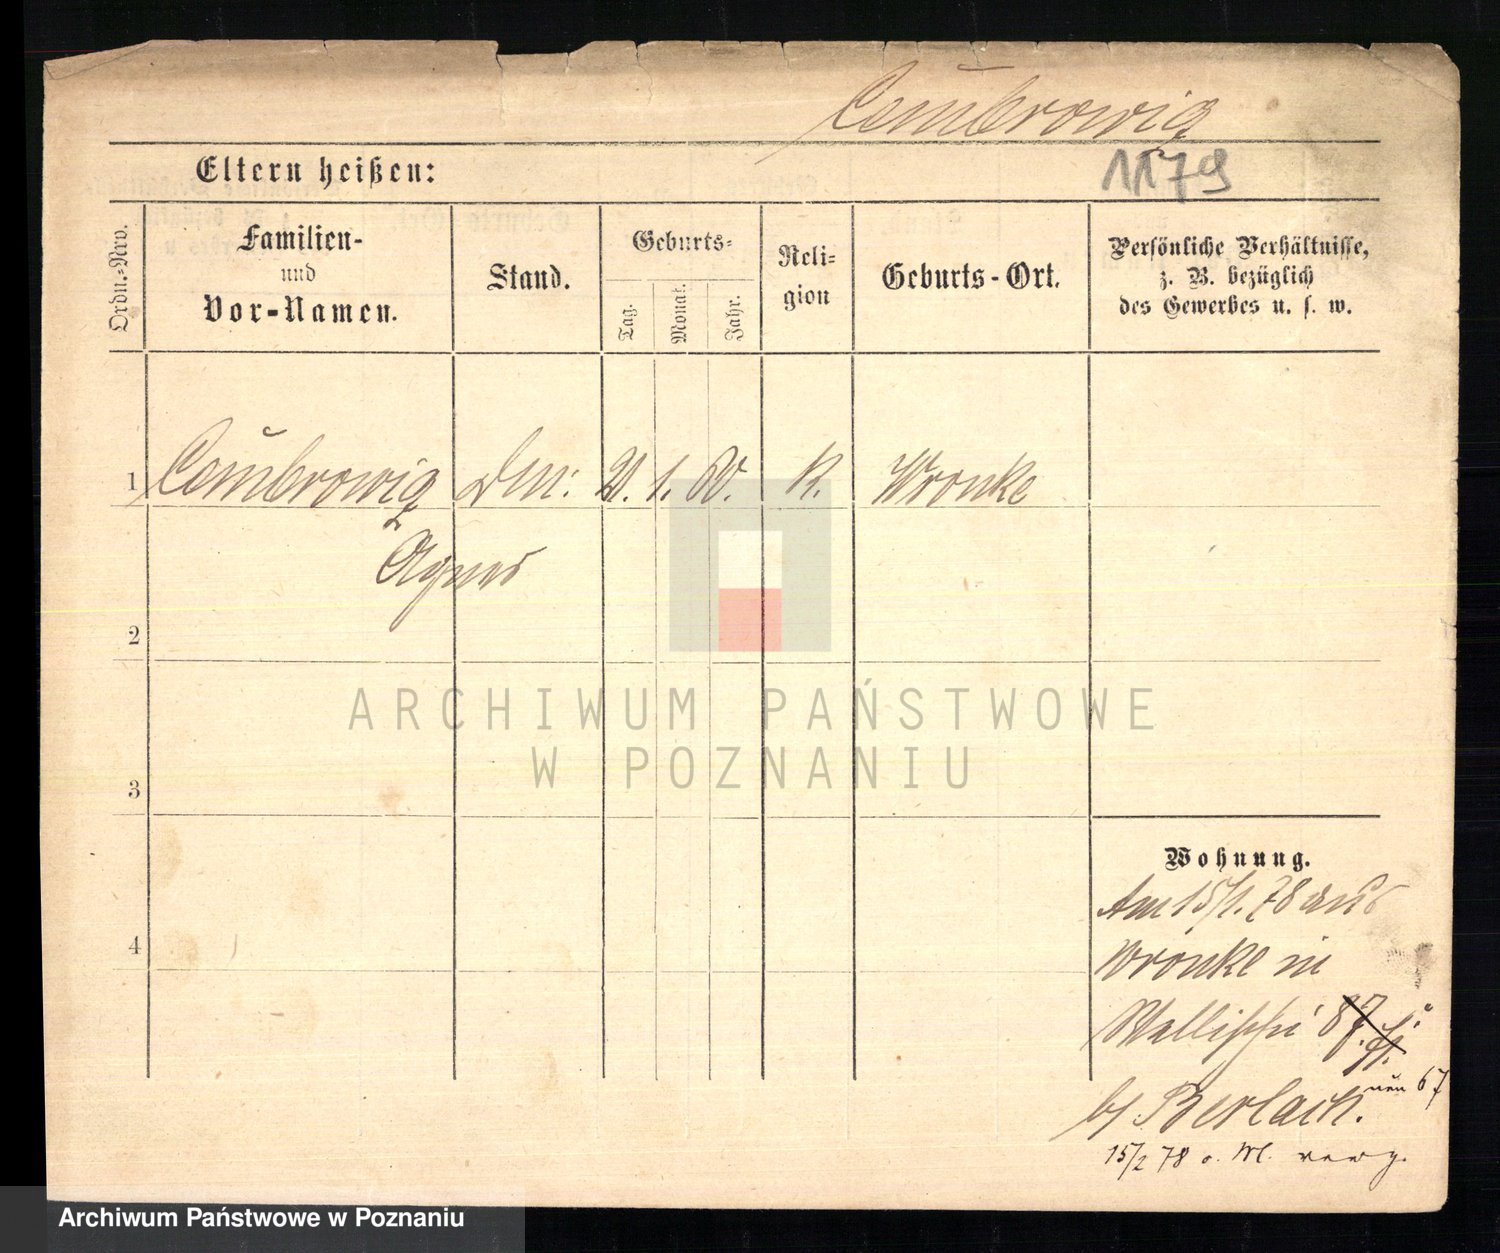 Cembrowicz
1179
Eltern heißen:
Ordn.-Nro.
Familien-
und
Vor-Namen.
Stand.
Geburts-
Tag.
Monat.
Jahr.
Reli-
gion
Geburts-Ort.
Persönliche Verhältnisse,
z. B. bezüglich
des Gewerbes u. s. w.
1
K.
Wronke
Agnes
2
ARCHIWUM PAŃSTWOWE
W POZNANIU
3
Wohnung.
Am 15/1. 78 aus
4
Wronke in
Wallischei 87
nun 67
by Gerlach.
15/2 78 v. M.
Archiwum Państwowe w Poznaniu